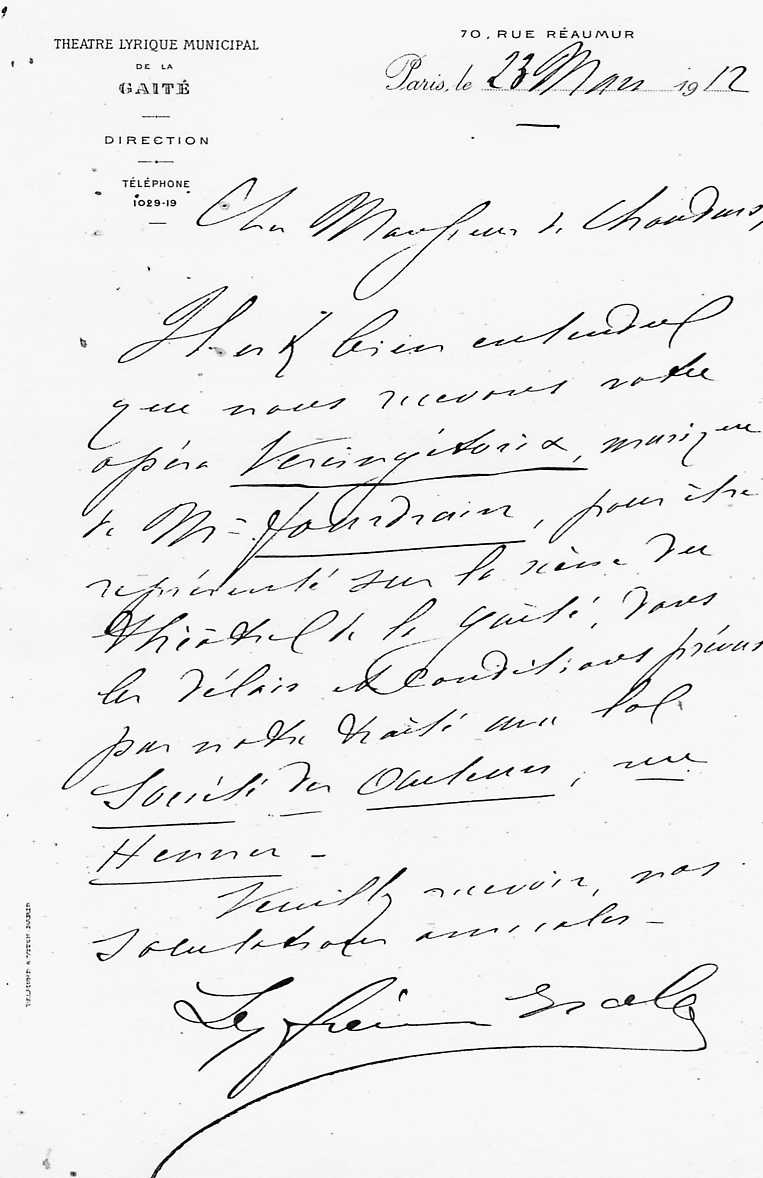 THEATRE LYRIQUE MUNICIPAL
DE LA
GAITÉ
DIRECTION
TÉLÉPHONE
1029-19
70, RUE RÉAUMUR
Paris, le 23 Mars 1912
Cher Monsieur de
Il est bien entendu
que nous recevons votre
opéra Vercingétorix, musique
de Mr Fourdrain, pour être
représenté sur la scène du
théâtre de la Gaîté, dans
les délais et conditions prévus
par notre traité avec la
Société des Auteurs, rue
Henner -
Veuillez recevoir, nos
salutations amicales -
Les frères Isola